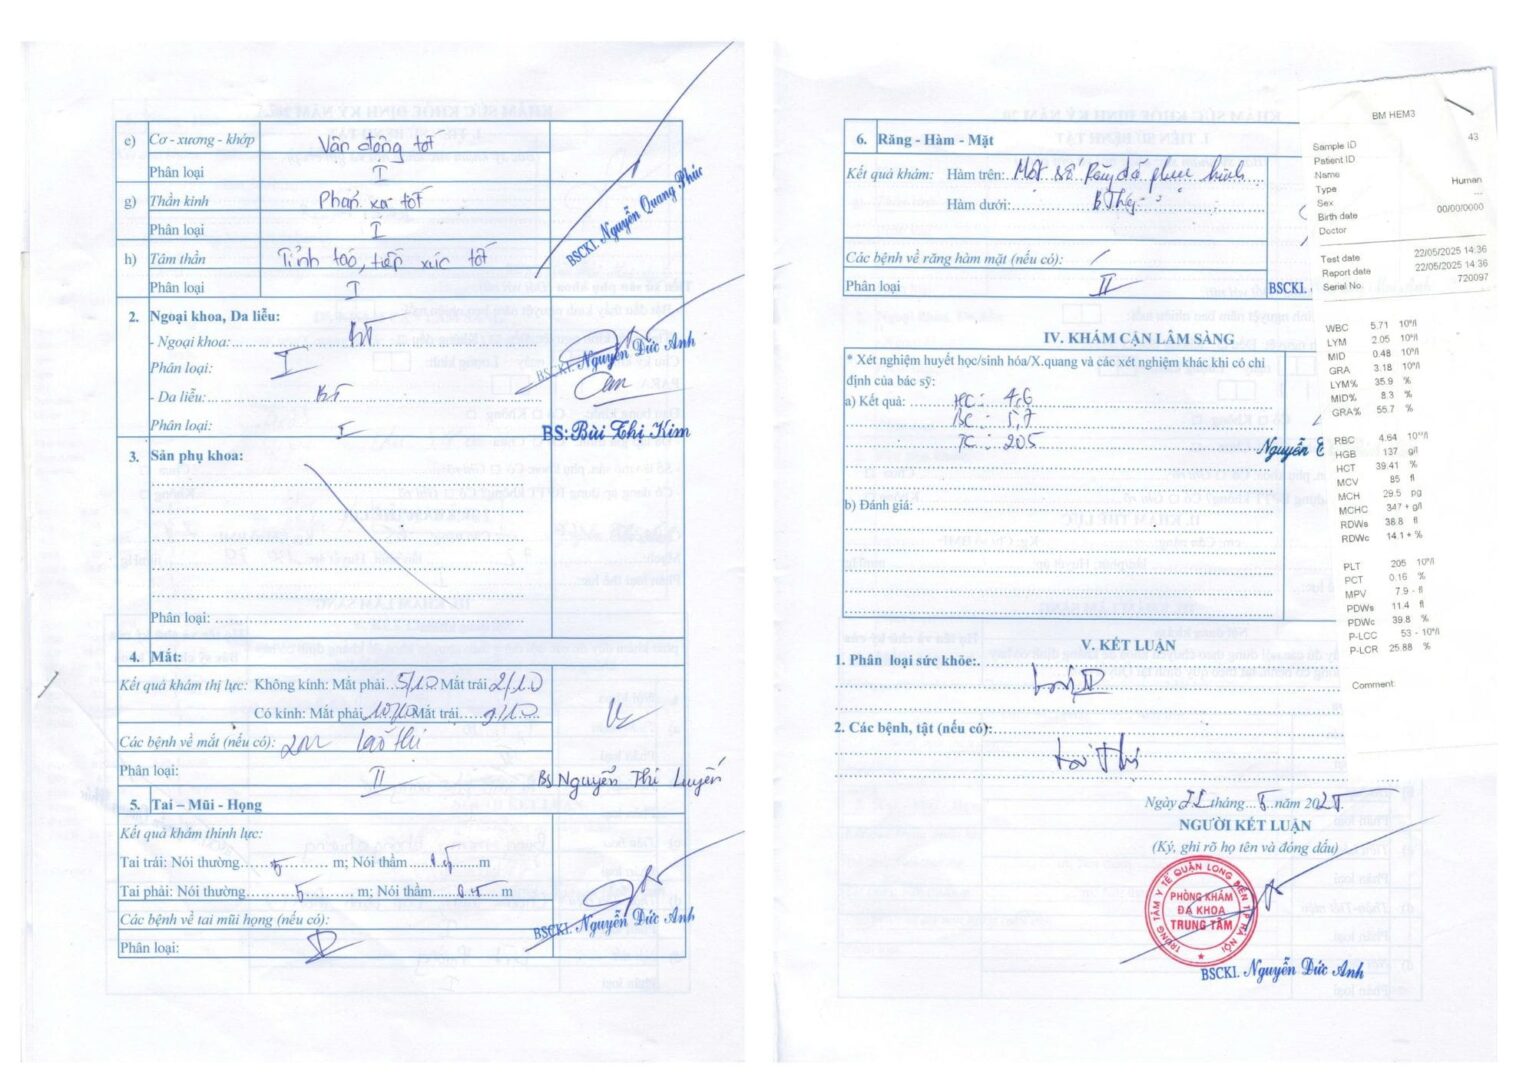 e) Cơ - xương - khớp Vận động tốt
Phân loại I
g) Thần kinh Phản xạ tốt
Phân loại I
h) Tâm thần Tỉnh táo, tiếp xúc tốt
Phân loại I
BSCKI. Nguyễn Quang Phúc
2. Ngoại khoa, Da liễu:
- Ngoại khoa: BT
Phân loại: I
BSCKI. Nguyễn Đức Anh
- Da liễu: BT
Phân loại: I
BS: Bùi Thị Kim
3. Sản phụ khoa:
Phân loại:
4. Mắt:
Kết quả khám thị lực: Không kính: Mắt phải 5/10 Mắt trái 2/10
Có kính: Mắt phải 10/10 Mắt trái 9/10
Các bệnh về mắt (nếu có): lão thị
Phân loại: II
Bs Nguyễn Thị Luyến
5. Tai – Mũi - Họng
Kết quả khám thính lực:
Tai trái: Nói thường 5 m; Nói thầm 0.5 m
Tai phải: Nói thường 5 m; Nói thầm 0.5 m
Các bệnh về tai mũi họng (nếu có):
Phân loại:
BSCKI. Nguyễn Đức Anh
6. Răng - Hàm - Mặt
Kết quả khám: Hàm trên: Một số Răng đã phục hình
Hàm dưới:
Các bệnh về răng hàm mặt (nếu có):
Phân loại II
BSCKI.
IV. KHÁM CẬN LÂM SÀNG
* Xét nghiệm huyết học/sinh hóa/X.quang và các xét nghiệm khác khi có chỉ
định của bác sỹ:
a) Kết quả: HC: 4,6
BC: 5,7
TC: 205
Nguyễn
b) Đánh giá:
V. KẾT LUẬN
1. Phân loại sức khỏe: Loại II
2. Các bệnh, tật (nếu có):
Ngày 22 tháng 5 năm 2025
NGƯỜI KẾT LUẬN
(Ký, ghi rõ họ tên và đóng dấu)
TRUNG TÂM Y TẾ QUẬN LONG BIÊN T.P HÀ NỘI
PHÒNG KHÁM
ĐA KHOA
TRUNG TÂM
BSCKI. Nguyễn Đức Anh
BM HEM3
Sample ID 43
Patient ID
Name
Type Human
Sex ---
Birth date 00/00/0000
Doctor
Test date 22/05/2025 14:36
Report date 22/05/2025 14:36
Serial No. 720097
WBC 5.71 10⁹/l
LYM 2.05 10⁹/l
MID 0.48 10⁹/l
GRA 3.18 10⁹/l
LYM% 35.9 %
MID% 8.3 %
GRA% 55.7 %
RBC 4.64 10¹²/l
HGB 137 g/l
HCT 39.41 %
MCV 85 fl
MCH 29.5 pg
MCHC 347 + g/l
RDWs 38.8 fl
RDWc 14.1 + %
PLT 205 10⁹/l
PCT 0.16 %
MPV 7.9 - fl
PDWs 11.4 fl
PDWc 39.8 %
P-LCC 53 - 10⁹/l
P-LCR 25.88 %
Comment: